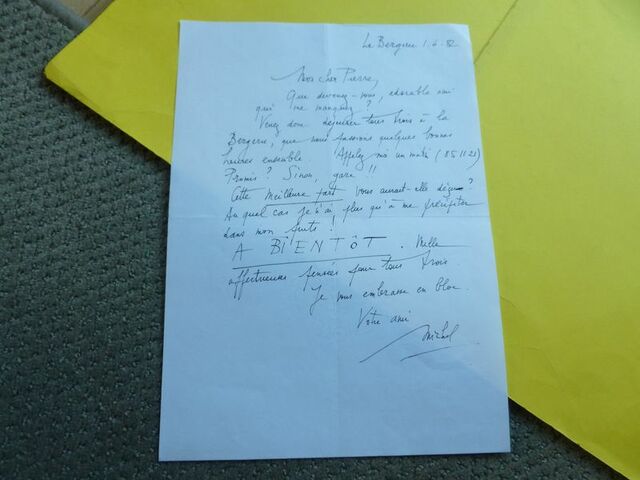 La Bergerie 1.6.82
Mon cher Pierre,
Que devenez-vous, adorable ami
qui me manquez ?
Venez donc déjeuner tous trois à la
Bergerie, que nous passions quelques bonnes
heures ensemble. Appelez moi un matin (85.11.21)
Promis ? Sinon, gare !!
Cette Meilleure part vous aurait-elle déçu ?
Au quel cas je n'ai plus qu'à me précipiter
dans mon puits !
A BIENTÔT. Mille
affectueuses pensées pour tous trois.
Je vous embrasse en bloc.
Votre ami
Michel